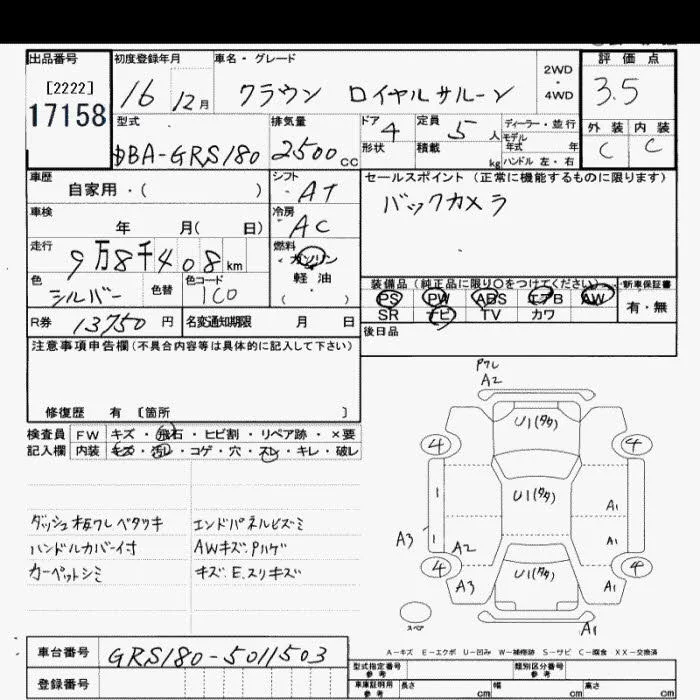 出品番号 初度登録年月 車名・グレード 評価点
[2222]
17158
16 12月 クラウン ロイヤルサルーン 2WD・4WD 3.5
型式 排気量 ドア 4 定員 5人 ディーラー・並行 外装 内装
DBA-GRS180 2500cc 形状 積載 kg モデル年式 年 ハンドル 左・右 C C
車歴 自家用・( ) シフト AT セールスポイント(正常に機能するものに限ります)
車検 年 月( 日) 冷房 AC バックカメラ
走行 9万8千408km 燃料 ガソリン
軽油
( )
色 シルバー 色替 色コード 1C0
装備品(純正品に限り○をつけてください) 新車保証書
PS PW ABS エアB AW 有・無
SR ナビ TV カワ
R券 13750円 名変通知期限 月 日
後日品
注意事項申告欄(不具合内容等は具体的に記入して下さい)
修復歴 有 〔箇所 〕
検査員 FW キズ・飛石・ヒビ割・リペア跡・×要
記入欄 内装 キズ・汚レ・コゲ・穴・スレ・キレ・破レ
ダッシュ板ワレ ベタツキ エンドパネルヒズミ
ハンドルカバー付 AWキズ.Pハゲ
カーペットシミ キズ.E.スリキズ
Pワレ
A2
U1(タタ)
4 4
1 U1(タタ) A1
A3 1 A2 A1
4 4
A3 U1(タタ) A1
スペア
A1
A-キズ E-エクボ U-凹み W-補修跡 S-サビ C-腐食 XX-交換済
車台番号 GRS180-5011503
型式指定番号 参考 類別区分番号 参考
登録番号 車庫証明用 参考 長さ cm 幅 cm 高さ cm